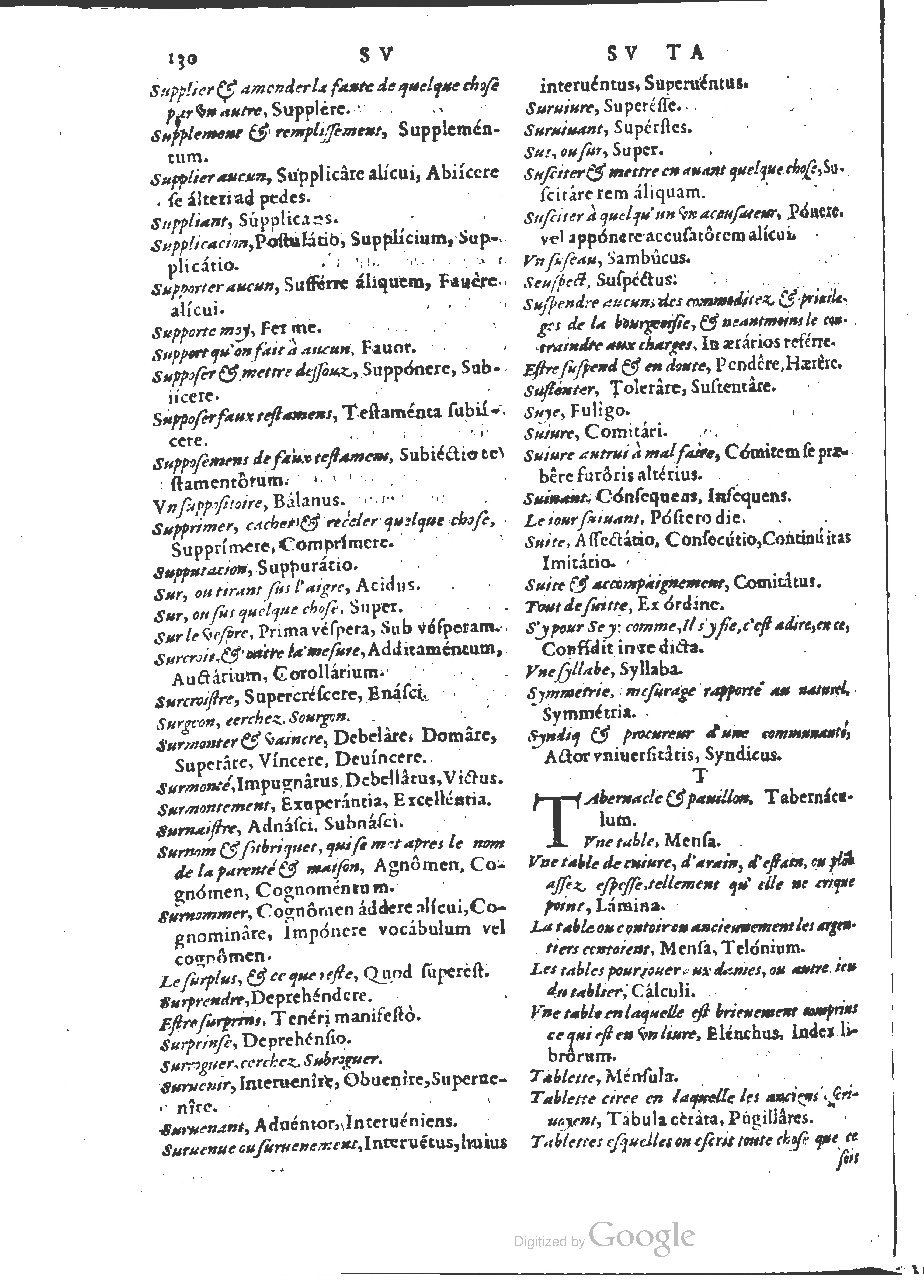 130 SV
Supplier & amender la faute de quelque chose
par vn autre, Supplêre.
Supplement & remplissement, Supplemén-
tum.
Supplier aucun, Supplicâre alícui, Abiícere
se álteri ad pedes.
Suppliant, Súpplicans.
Supplication, Postulátio, Supplícium, Sup-
plicátio.
Supporter aucun, Sufférre áliquem, Fauêre
alícui.
Supporte moy, Fer me.
Support qu'on fait à aucun, Fauor.
Supposer & mettre dessouz, Suppónere, Sub-
iícere.
Supposer faux testamens, Testaménta subií-
cere.
Supposemens de faux testamens, Subiéctio te
stamentôrum.
Vn suppositoire, Bálanus.
Supprimer, cacher & receler quelque chose,
Supprímere, Comprímere.
Supputacion, Suppurátio.
Sur, ou tirant sus l'aigre, Acidus.
Sur, ou sus quelque chose, Super.
Sur le vespre, Prima véspera, Sub vésperam.
Surcrois, & outre la mesure, Additaméntum,
Auctárium, Corollárium.
Surcroistre, Supercréscere, Enásci.
Surgeon, cerchez Sourgon.
Surmonter & vaincre, Debelâre, Domâre,
Superâre, Víncere, Deuíncere.
Surmonté, Impugnâtus, Debellâtus, Victus.
Surmontement, Exuperántia, Excelléntia.
Surnaistre, Adnásci, Subnásci.
Surnom & sibriquet, qui se met apres le nom
de la parenté & maison, Agnômen, Co-
gnómen, Cognoméntum.
Surnommer, Cognômen áddere alícui, Co-
gnominâre, Impónere vocábulum vel
cognômen.
Le surplus, & ce que reste, Quod superêst.
Surprendre, Deprehéndere.
Estre surprins, Tenéri manifestò.
Surprinse, Deprehénsio.
Surroguer, cerchez Subroguer.
Suruenir, Interuenîre, Obuenîre, Superue-
nîre.
Suruenant, Aduéntor, Interuéniens.
Suruenue ou suruenement, Interuétus, huius
SV TA
interuéntus, Superuéntus.
Suruiure, Superésse.
Suruiuant, Supérstes.
Sus, ou sur, Super.
Susciter & mettre en auant quelque chose, Su-
scitâre rem áliquam.
Susciter à quelqu'un vn acusateur, Pónere
vel appónere accusatôrem alícui.
Vn suseau, Sambúcus.
Seuspect, Suspéctus.
Suspendre aucun des commoditez & priuile-
ges de la bourgeoisie, & neantmoins le con-
traindre aux charges, In ærários reférre.
Estre suspend & en doute, Pendêre, Hærêre.
Sustenter, Tolerâre, Sustentâre.
Suye, Fulîgo.
Suiure, Comitári.
Suiure autrui à mal faire, Cómitem se præ-
bêre furôris altérius.
Suiuant, Cónsequens, Insequens.
Le iour suiuant, Póstero die.
Suite, Assectátio, Consecútio, Continúitas
Imitátio.
Suite & accompaignement, Comitâtus.
Tout de suitte, Ex órdine.
S'y pour Se y: comme, Il s'y fie, c'est adire, en ce,
Confídit in re dicta.
Vne syllabe, Syllaba.
Symmetrie, mesurage rapporté au naturel,
Symmétria.
Syndiq & procureur d'une communauté,
Actor vniuersitâtis, Syndicus.
T
TAbernacle & pauillon, Tabernácu-
lum.
Vne table, Mensa.
Vne table de cuiure, d'arain, d'estain, ou plōb
assez espesse, tellement qu'elle ne crique
point, Lámina.
La table ou contoir ou anciennement les argen-
tiers contoient, Mensa, Telónium.
Les tables pour iouer aux dames, ou autre ieu
du tablier, Câlculi.
Vne table en laquelle est brieuement comprins
ce qui est en vn liure, Elénchus, Index li-
brôrum.
Tablette, Ménsula.
Tablette ciree en laquelle les anciens escri-
uoyent, Tabula cerâta, Pugillâres.
Tablettes esquelles on escris toute chose que ce
soit
Digitized by Google